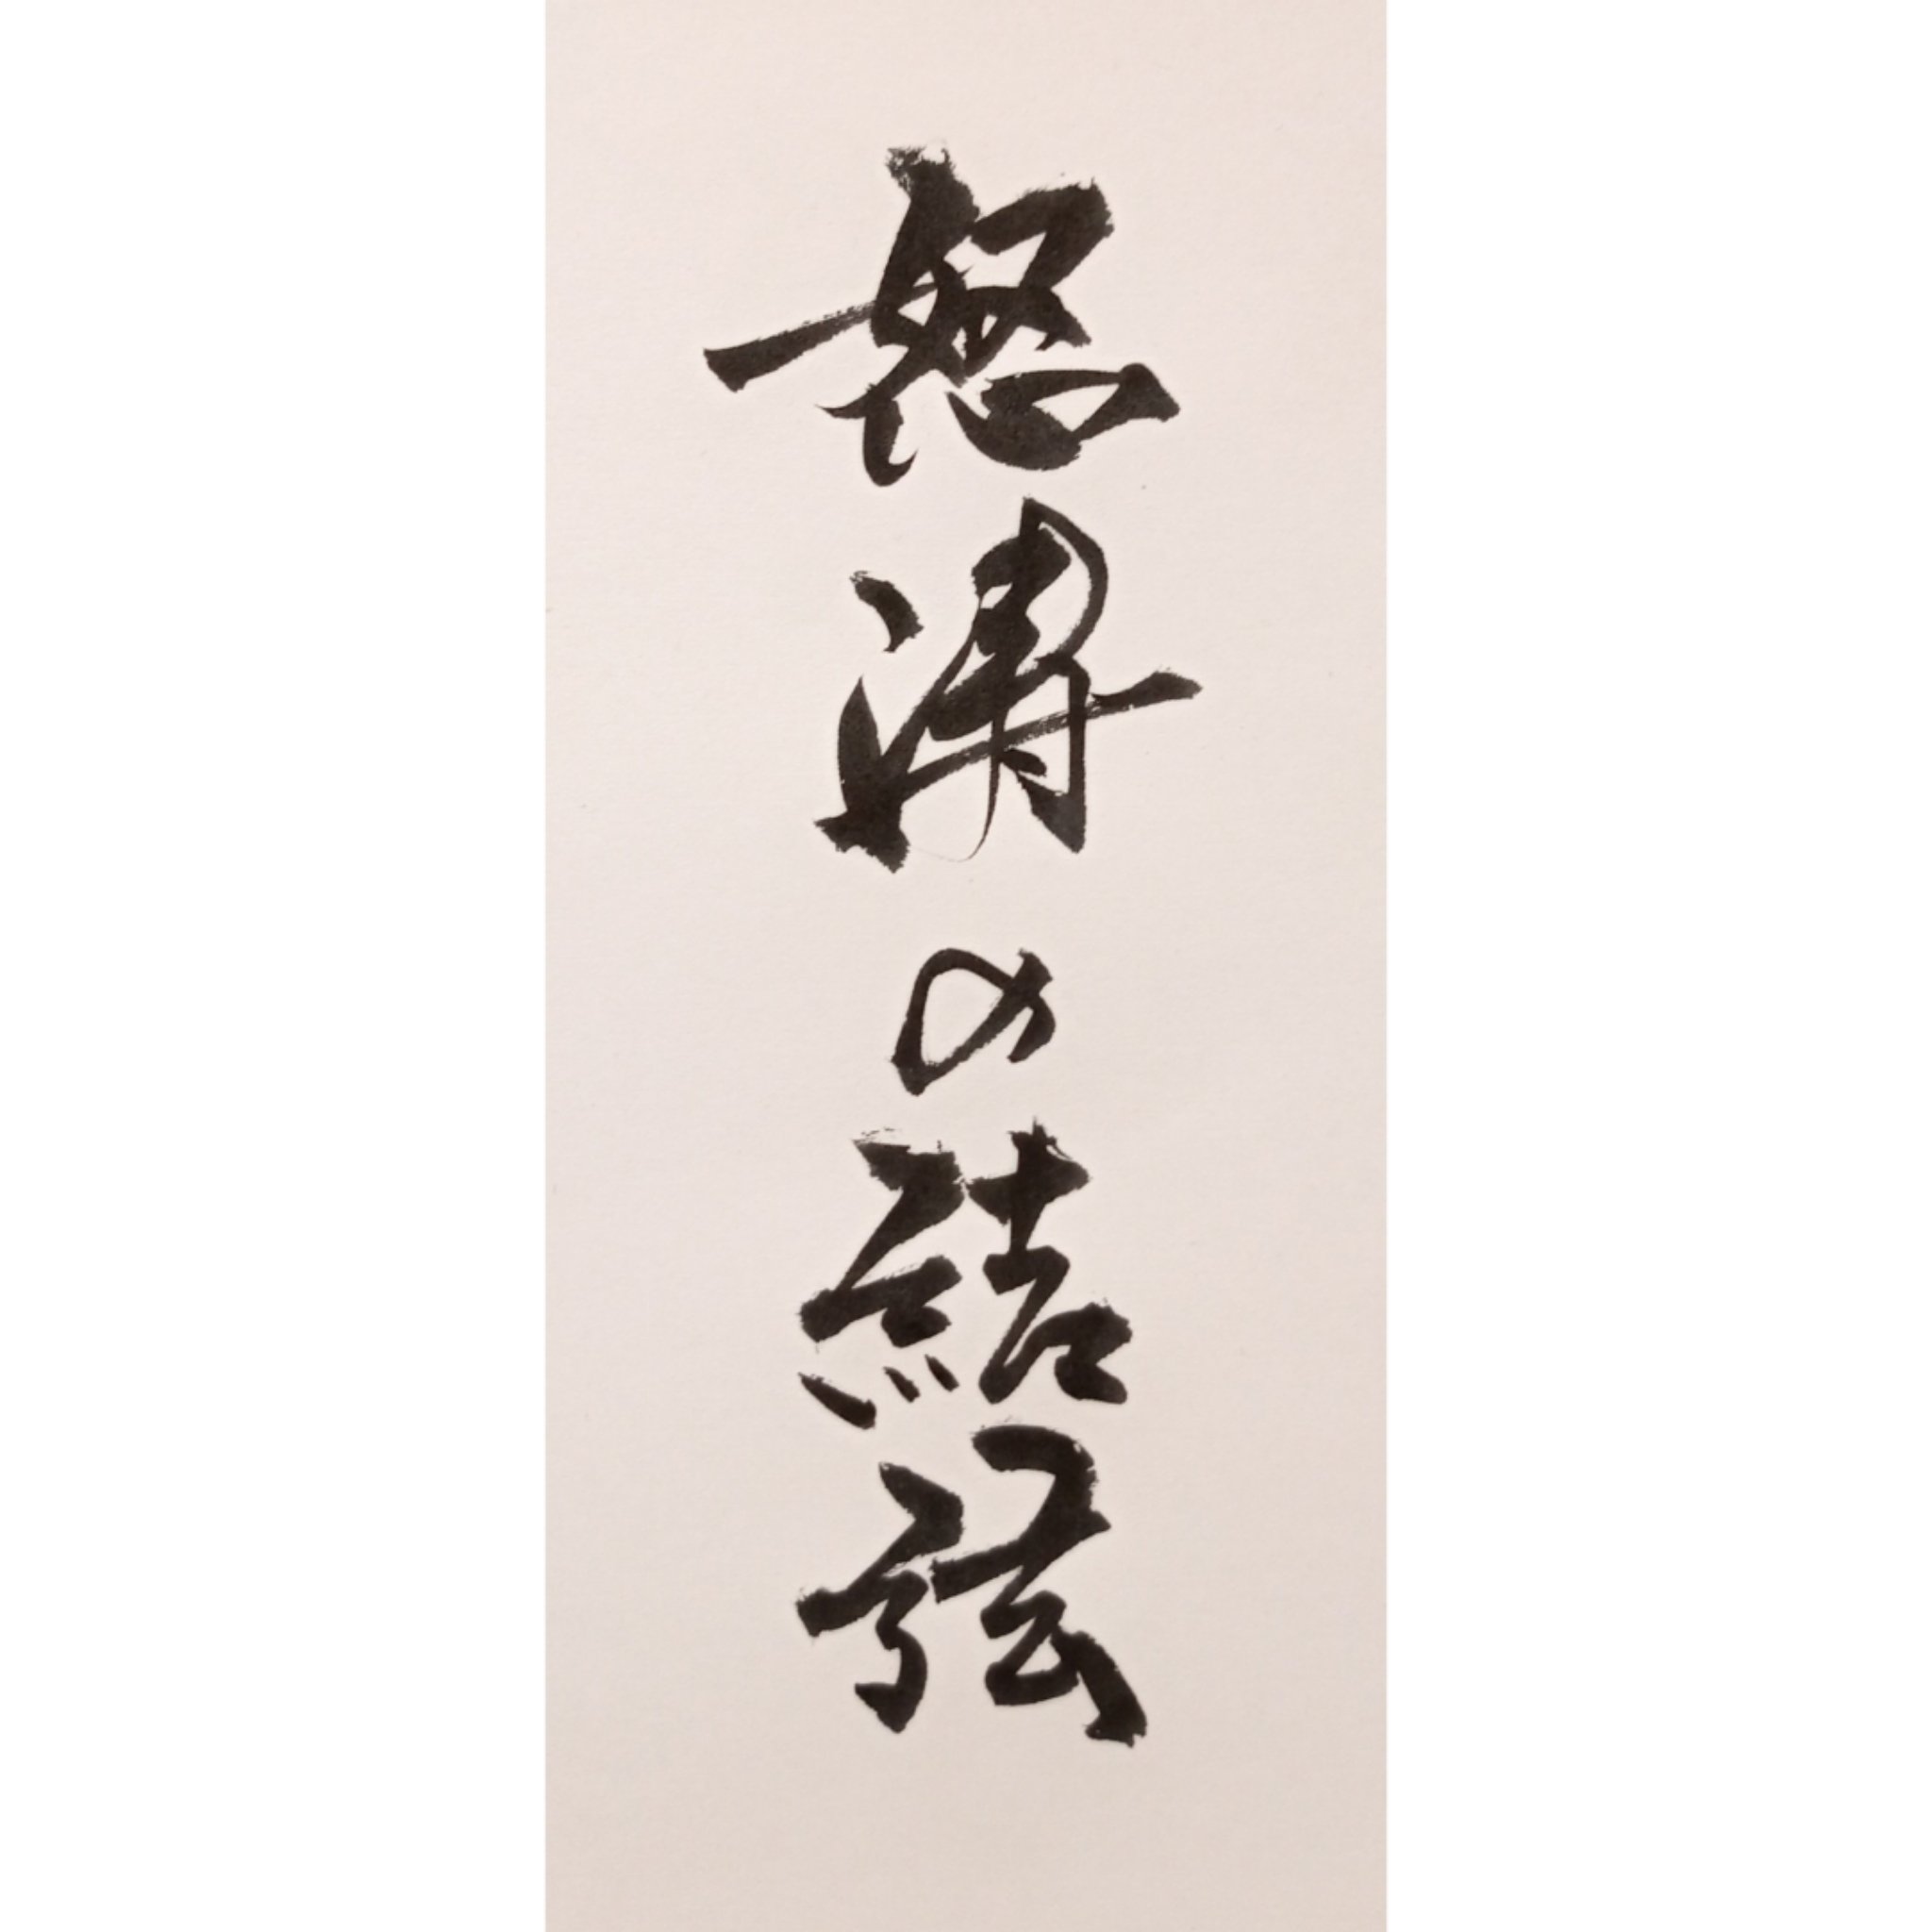 怒濤の結弦